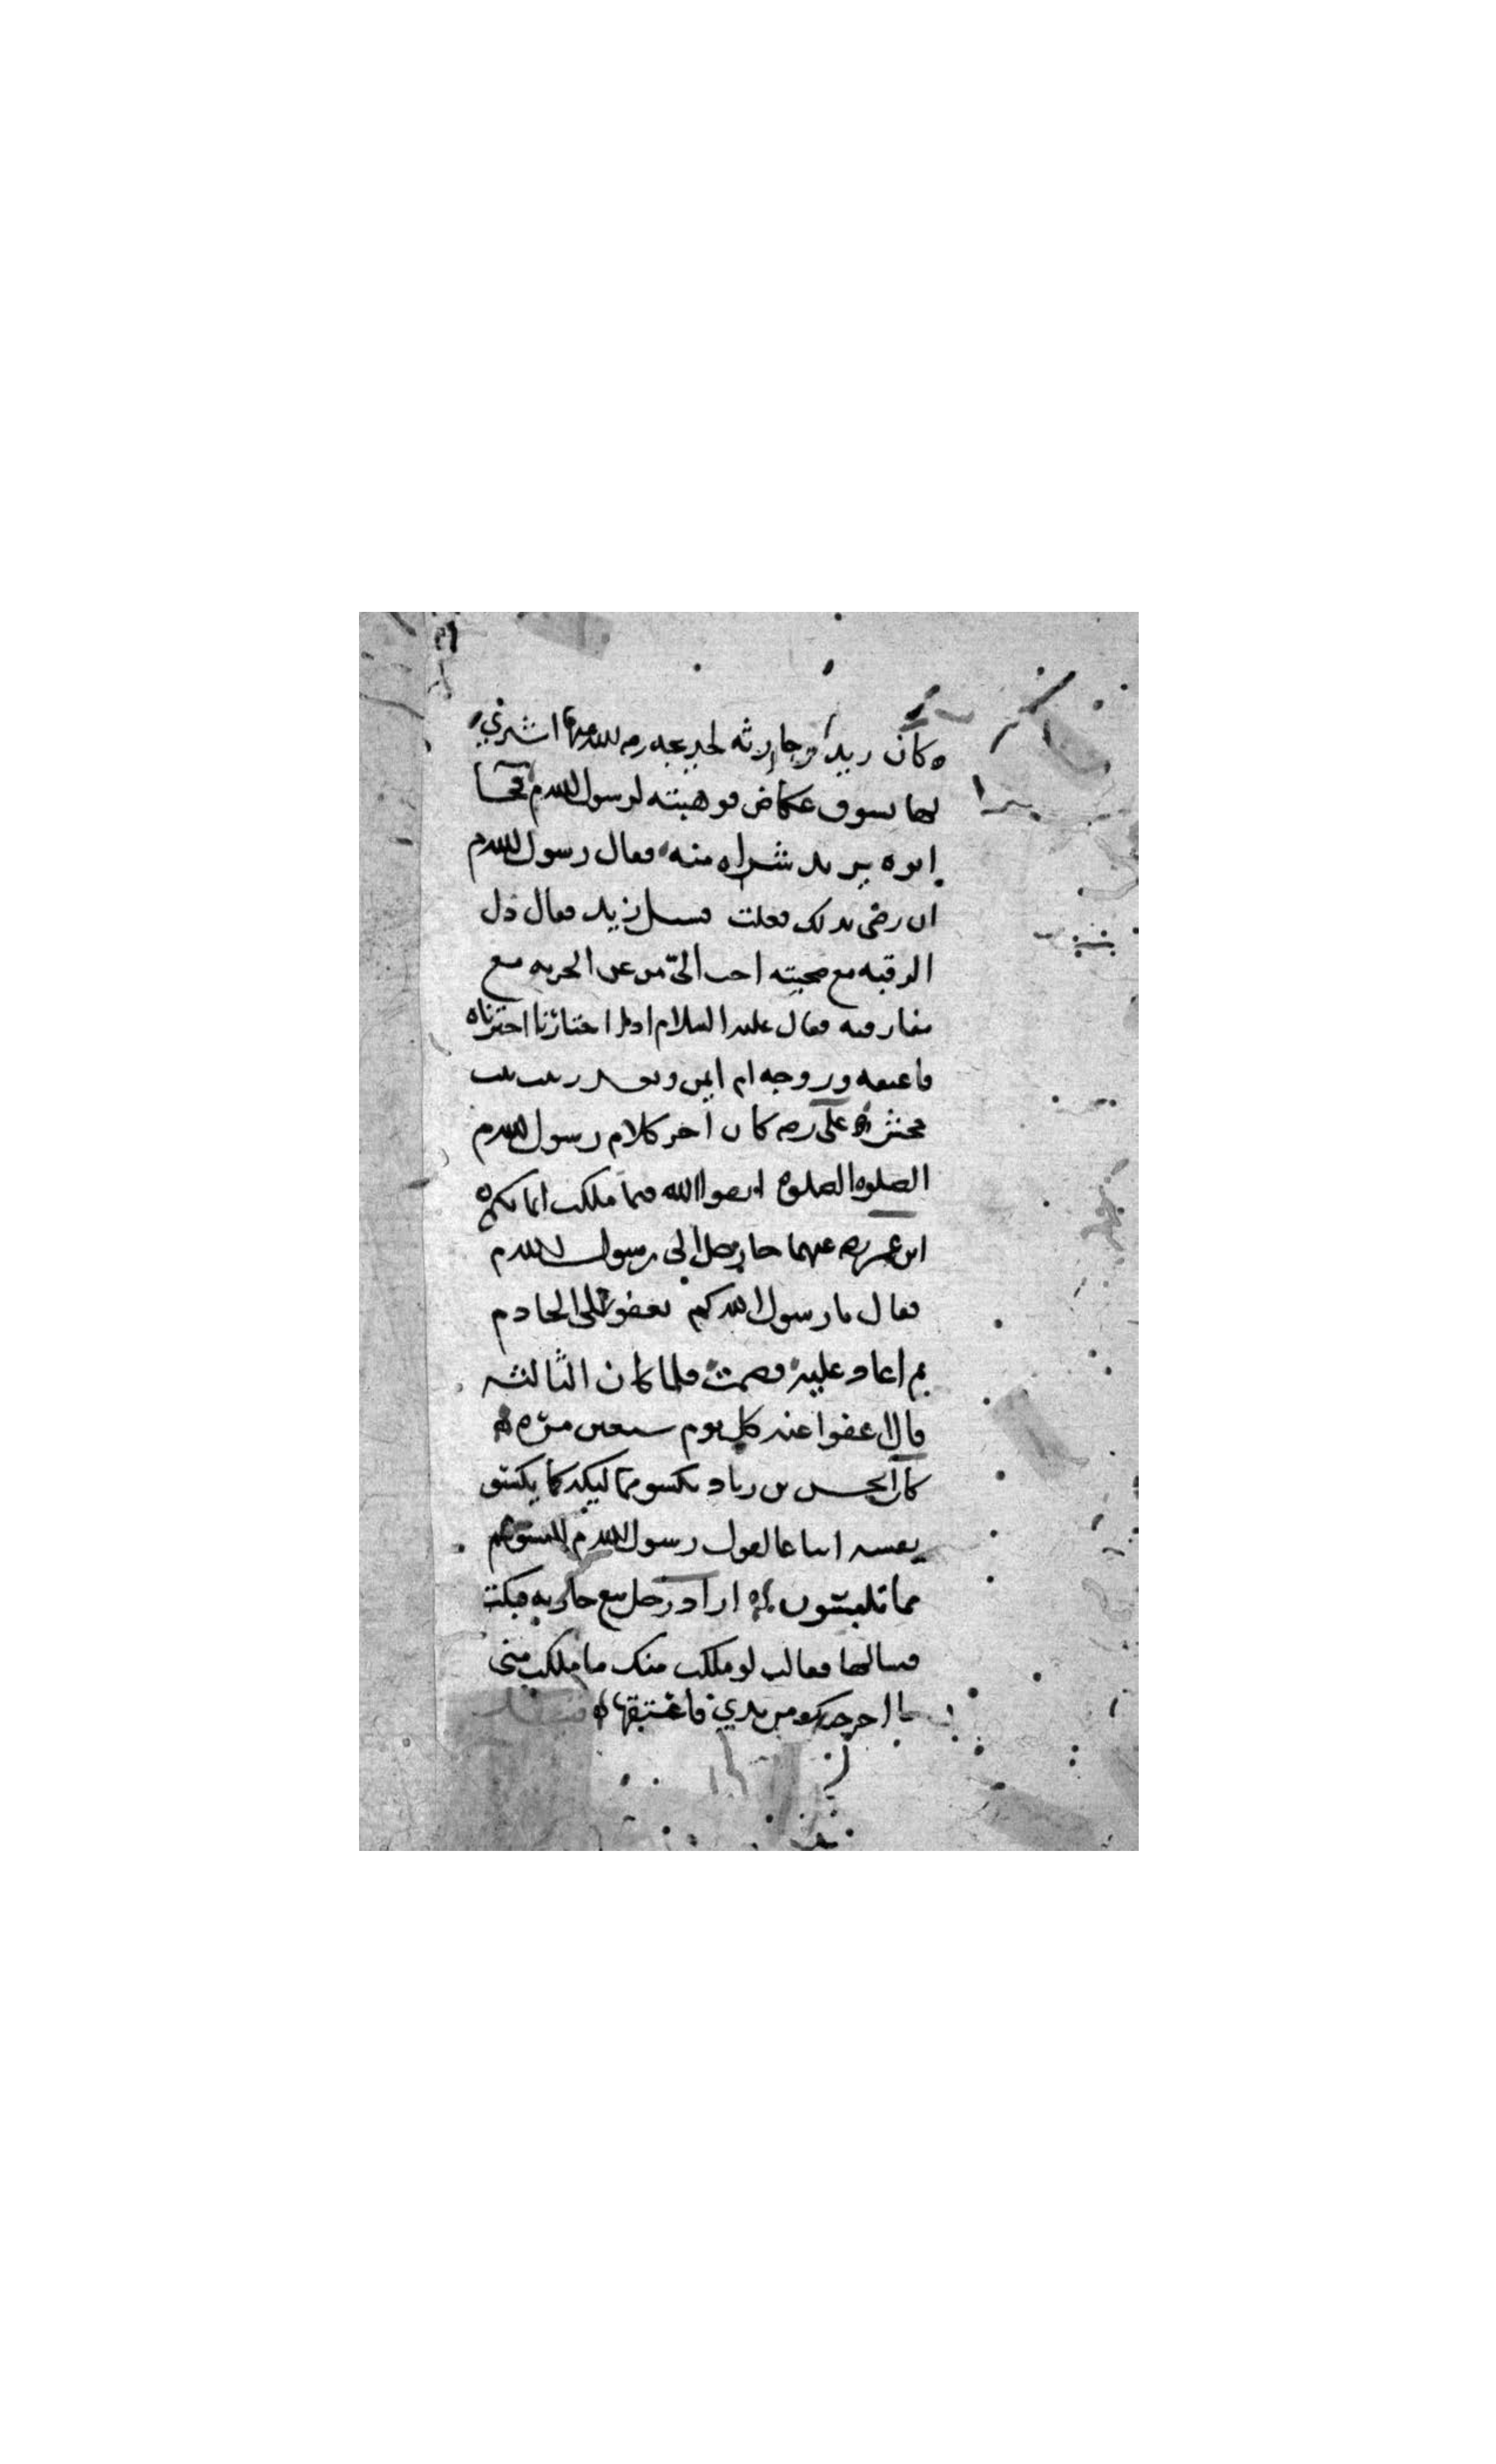 كان زيد بن حارثه لخديجه رضي الله عنها اشتري
لها بسوق عكاض فوهبته لرسول الله صلم فجا
ابوه يريد شراه منه فقال رسول الله صلم
ان رضي بذلك فعلت فسل زيد فقال ذل
الرقبه مع صحبته احب الىّ من عز الحريه مع
مفارقته فقال عليه السلام اذا اختارنا اخترناه
فاعتقه وزوجه ام ايمن وبعد زينب بنت
جحش علي رضه كان اخر كلام رسول الله صلم
الصلوه الصلوه اتقوا الله فيما ملكت ايمانكم
ابن عمر رضه عنهما جا رجل الى رسول الله صلم
فقال يا رسول الله كم نعفو على الخادم
ثم اعاد عليه فصمت فلما كان الثالثه
قال اعفوا عنه كل يوم سبعين مرّه
كان الحسن بن زياد يكسو مماليكه كما يكسو
نفسه اتباعا لقول رسول الله صلم البسوهم
مما تلبسون اراد رجل بيع جاريه فبكت
فسالها فقالت لو ملكت منك ما ملكت مني
ما اخرجتك من يدي فاعتقها